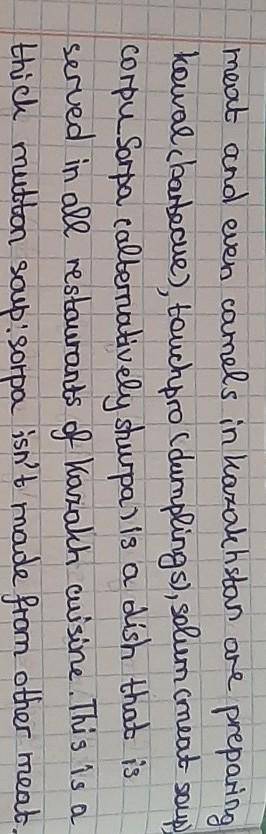 meat and even camels in kazakhstan are preparing
kowal (barbecue), touchpro (dumplings), solum (meat soup)
corpu Sorpa (alternatively shurpa) is a dish that is
served in all restaurants of kazakh cuisine. This is a
thick mutton soup: sorpa isn't made from other meat.